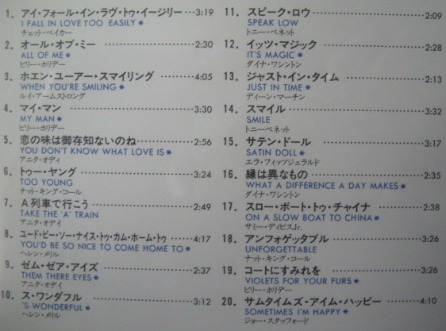 1. アイ・フォール・イン・ラヴ・トゥ・イージリー・・・3:19
I FALL IN LOVE TOO EASILY＊
チェット・ベイカー
2. オール・オブ・ミー・・・・・・・・・・・・2:30
ALL OF ME＊
ビリー・ホリデー
3. ホエン・ユーアー・スマイリング・・・・・・4:05
WHEN YOU'RE SMILING＊
ルイ・アームストロング
4. マイ・マン・・・・・・・・・・・・・・・・3:30
MY MAN＊
ビリー・ホリデー
5. 恋の味は御存知ないのね・・・・・・・・・・2:56
YOU DON'T KNOW WHAT LOVE IS＊
アニタ・オデイ
6. トゥー・ヤング・・・・・・・・・・・・・・3:24
TOO YOUNG
ナット・キング・コール
7. A列車で行こう・・・・・・・・・・・・・・2:49
TAKE THE 'A' TRAIN
アニタ・オデイ
8. ユード・ビー・ソー・ナイス・トゥ・カム・ホーム・トゥ・・・4:17
YOU'D BE SO NICE TO COME HOME TO＊
ヘレン・メリル
9. ゼム・ゼア・アイズ・・・・・・・・・・・・2:37
THEM THERE EYES＊
アニタ・オデイ
10. ス・ワンダフル・・・・・・・・・・・・・・3:12
'S WONDERFUL＊
ヘレン・メリル
11. スピーク・ロウ・・・・・・・・・・・・・・2:09
SPEAK LOW
トニー・ベネット
12. イッツ・マジック・・・・・・・・・・・・・2:28
IT'S MAGIC＊
ダイナ・ワシントン
13. ジャスト・イン・タイム・・・・・・・・・・2:13
JUST IN TIME＊
ディーン・マーチン
14. スマイル・・・・・・・・・・・・・・・・・3:32
SMILE
トニー・ベネット
15. サテン・ドール・・・・・・・・・・・・・・3:17
SATIN DOLL＊
エラ・フィッツジェラルド
16. 縁は異なもの・・・・・・・・・・・・・・・2:35
WHAT A DIFFERENCE A DAY MAKES＊
ダイナ・ワシントン
17. スロー・ボート・トゥ・チャイナ・・・・・・2:38
ON A SLOW BOAT TO CHINA＊
サミー・デイビスJr.
18. アンフォゲッタブル・・・・・・・・・・・・3:26
UNFORGETTABLE
ナット・キング・コール
19. コートにすみれを・・・・・・・・・・・・・3:26
VIOLETS FOR YOUR FURS＊
ビリー・ホリデー
20. サムタイムズ・アイム・ハッピー・・・・・・4:10
SOMETIMES I'M HAPPY＊
ジョー・スタッフォード